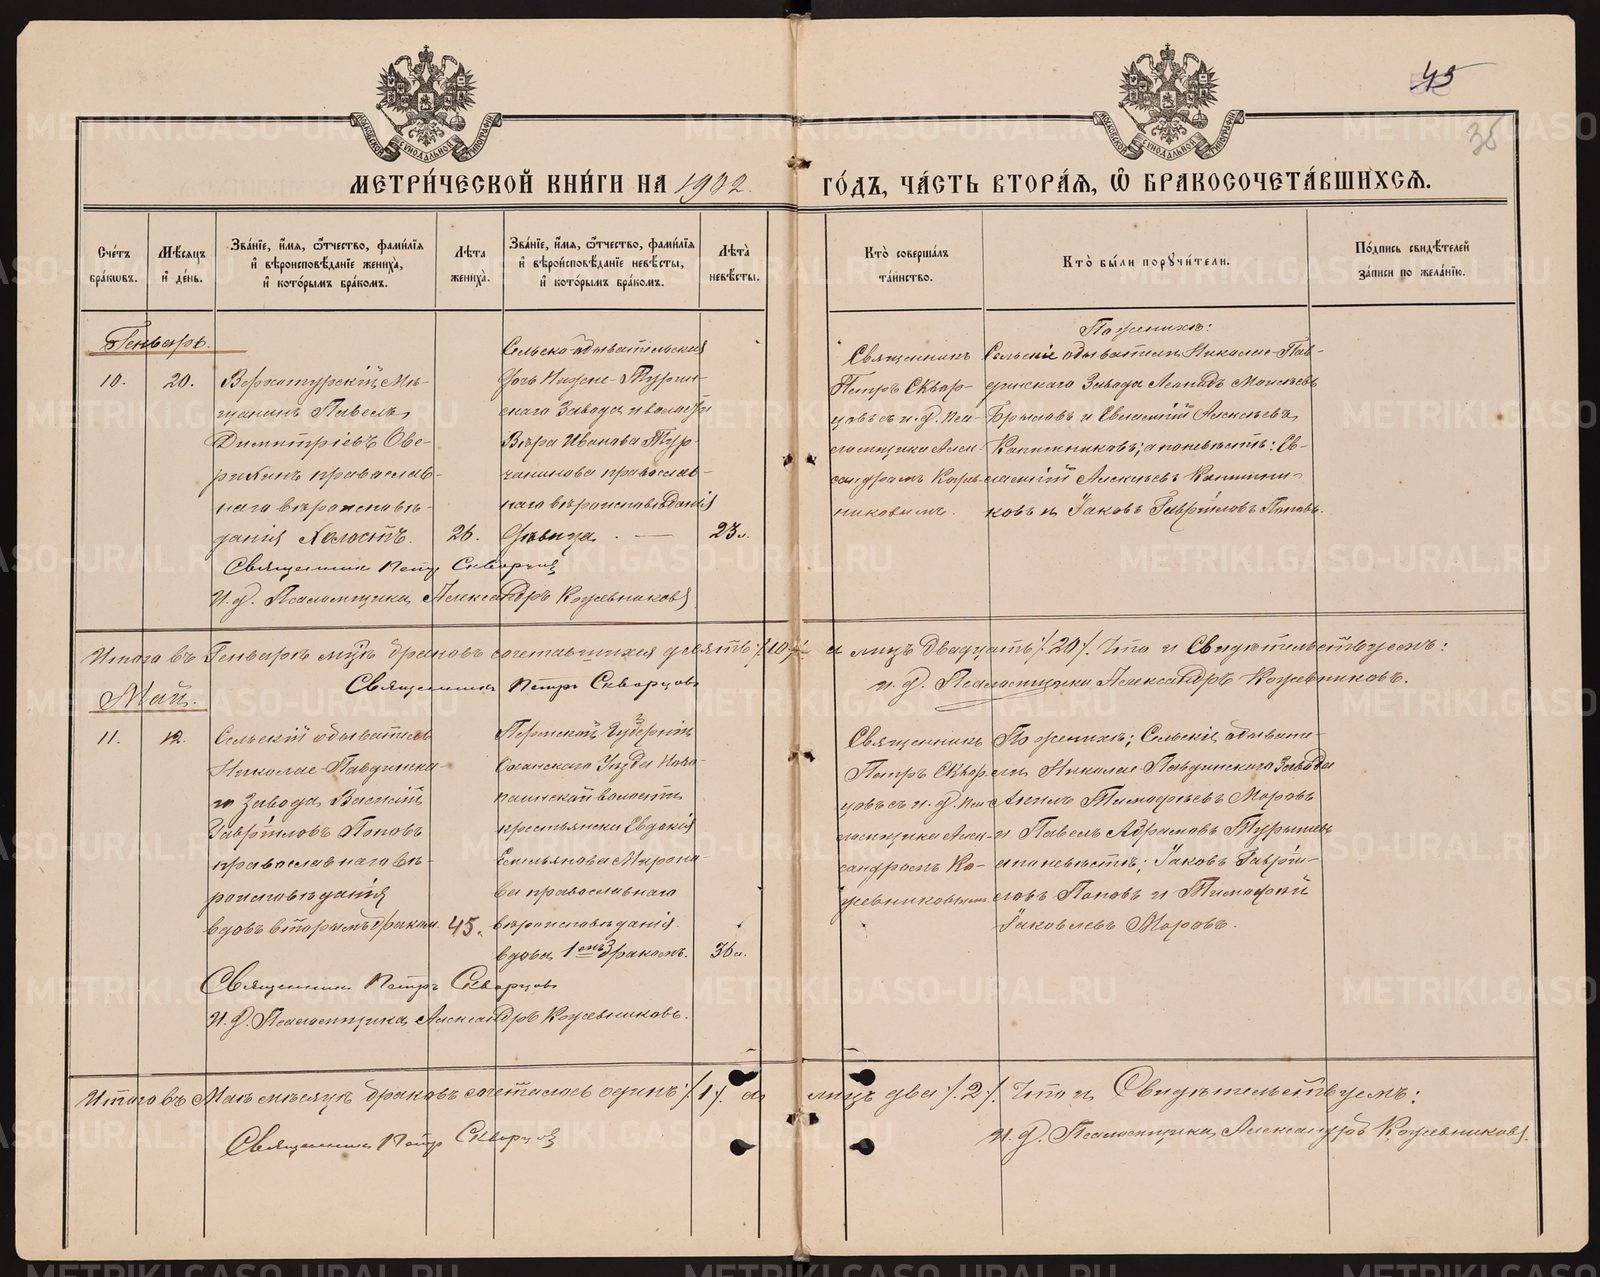 45
35
МЕТРИ́ЧЕСКОЙ КНИ́ГИ НА 1902
ГО́ДЪ, ЧА́СТЬ ВТОРА́Я, Ѿ БРАКОСОЧЕТА́ВШИХСЯ.
Сче́тъ бра́ковъ.
Мѣ́сяцъ и҆ де́нь.
Зва́нїе, и҆́мя, ѻ҆́тчество, фами́лїя и҆ вѣроисповѣ́данїе жениха̀, и҆ кото́рымъ бра́комъ.
Лѣ́та жениха̀.
Зва́нїе, и҆́мя, ѻ҆́тчество, фами́лїя и҆ вѣроисповѣ́данїе невѣ́сты, и҆ кото́рымъ бра́комъ.
Лѣ́та невѣ́сты.
Кто̀ соверша́лъ та́инство.
Кто̀ бы́ли порꙋчи́тели.
По́дпись свидѣ́телей за́писи по жела́нїю.
Генварь.
10.
20.
Верхотурскій мѣ-
щанинъ Павелъ
Димитріевъ Ове-
православ-
наго вѣроисповѣ-
данія Холостъ.
26.
Сельско-обывательская
дочь Нижне-Турин-
скаго Завода и волости
Вѣра Иванова Тур-
чанинова православ-
наго вѣроисповѣданія
дѣвица.
23.
Священникъ
Петръ Сквор-
цовъ съ и. д. пса-
ломщика Алек-
сандромъ Кожев-
никовымъ.
По женихѣ:
Сельскіе обыватели Николае-Пав-
динскаго Завода Леонидъ Моисѣевъ
и Евлампій Алексѣевъ
а по невѣстѣ: Ев-
лампій Алексѣевъ
и Іаковъ Гавріиловъ Поповъ.
Священникъ Петръ Скворцовъ
И. д. Псаломщика Александръ Кожевниковъ
Итого въ Генварѣ мцѣ браковъ сочетавшихся десять /10/ а лицъ двадцать /20/. Что и Свидѣтельствуемъ:
Священникъ Петръ Скворцовъ
и. д. Псаломщика Александръ Кожевниковъ.
Май.
11.
12.
Сельскій обыватель
Николае-Павдинска-
го Завода Василій
Гавріиловъ Поповъ
православнаго вѣ-
роисповѣданія
вдовъ вторымъ бракомъ
45.
Пермской Губерніи
Оханскаго Уѣзда
волости
крестьянка Евдокія
Емельянова Мироно-
ва православнаго
вѣроисповѣданія.
вдова 1-мъ бракомъ.
36
Священникъ
Петръ Сквор-
цовъ съ и. д. пса-
ломщика Алек-
сандромъ Ко-
жевниковымъ
По женихѣ; Сельскіе обывате-
ли Николае-Павдинскаго Завода
Тимофѣевъ Моровъ
и Павелъ
а по невѣстѣ; Іаковъ Гаврі-
ловъ Поповъ и Тимофей
Іаковлевъ Моровъ.
Священникъ Петръ Скворцовъ
И. д. Псаломщика Александръ Кожевниковъ.
Итого въ Маѣ мѣсяцѣ браковъ сочеталось одинъ /1/. а лицъ два /2/. Что и Свидѣтельствуемъ:
Священникъ Петръ Скворцовъ
И. д. Псаломщика Александръ Кожевниковъ.
METRIKI.GASO-URAL.RU